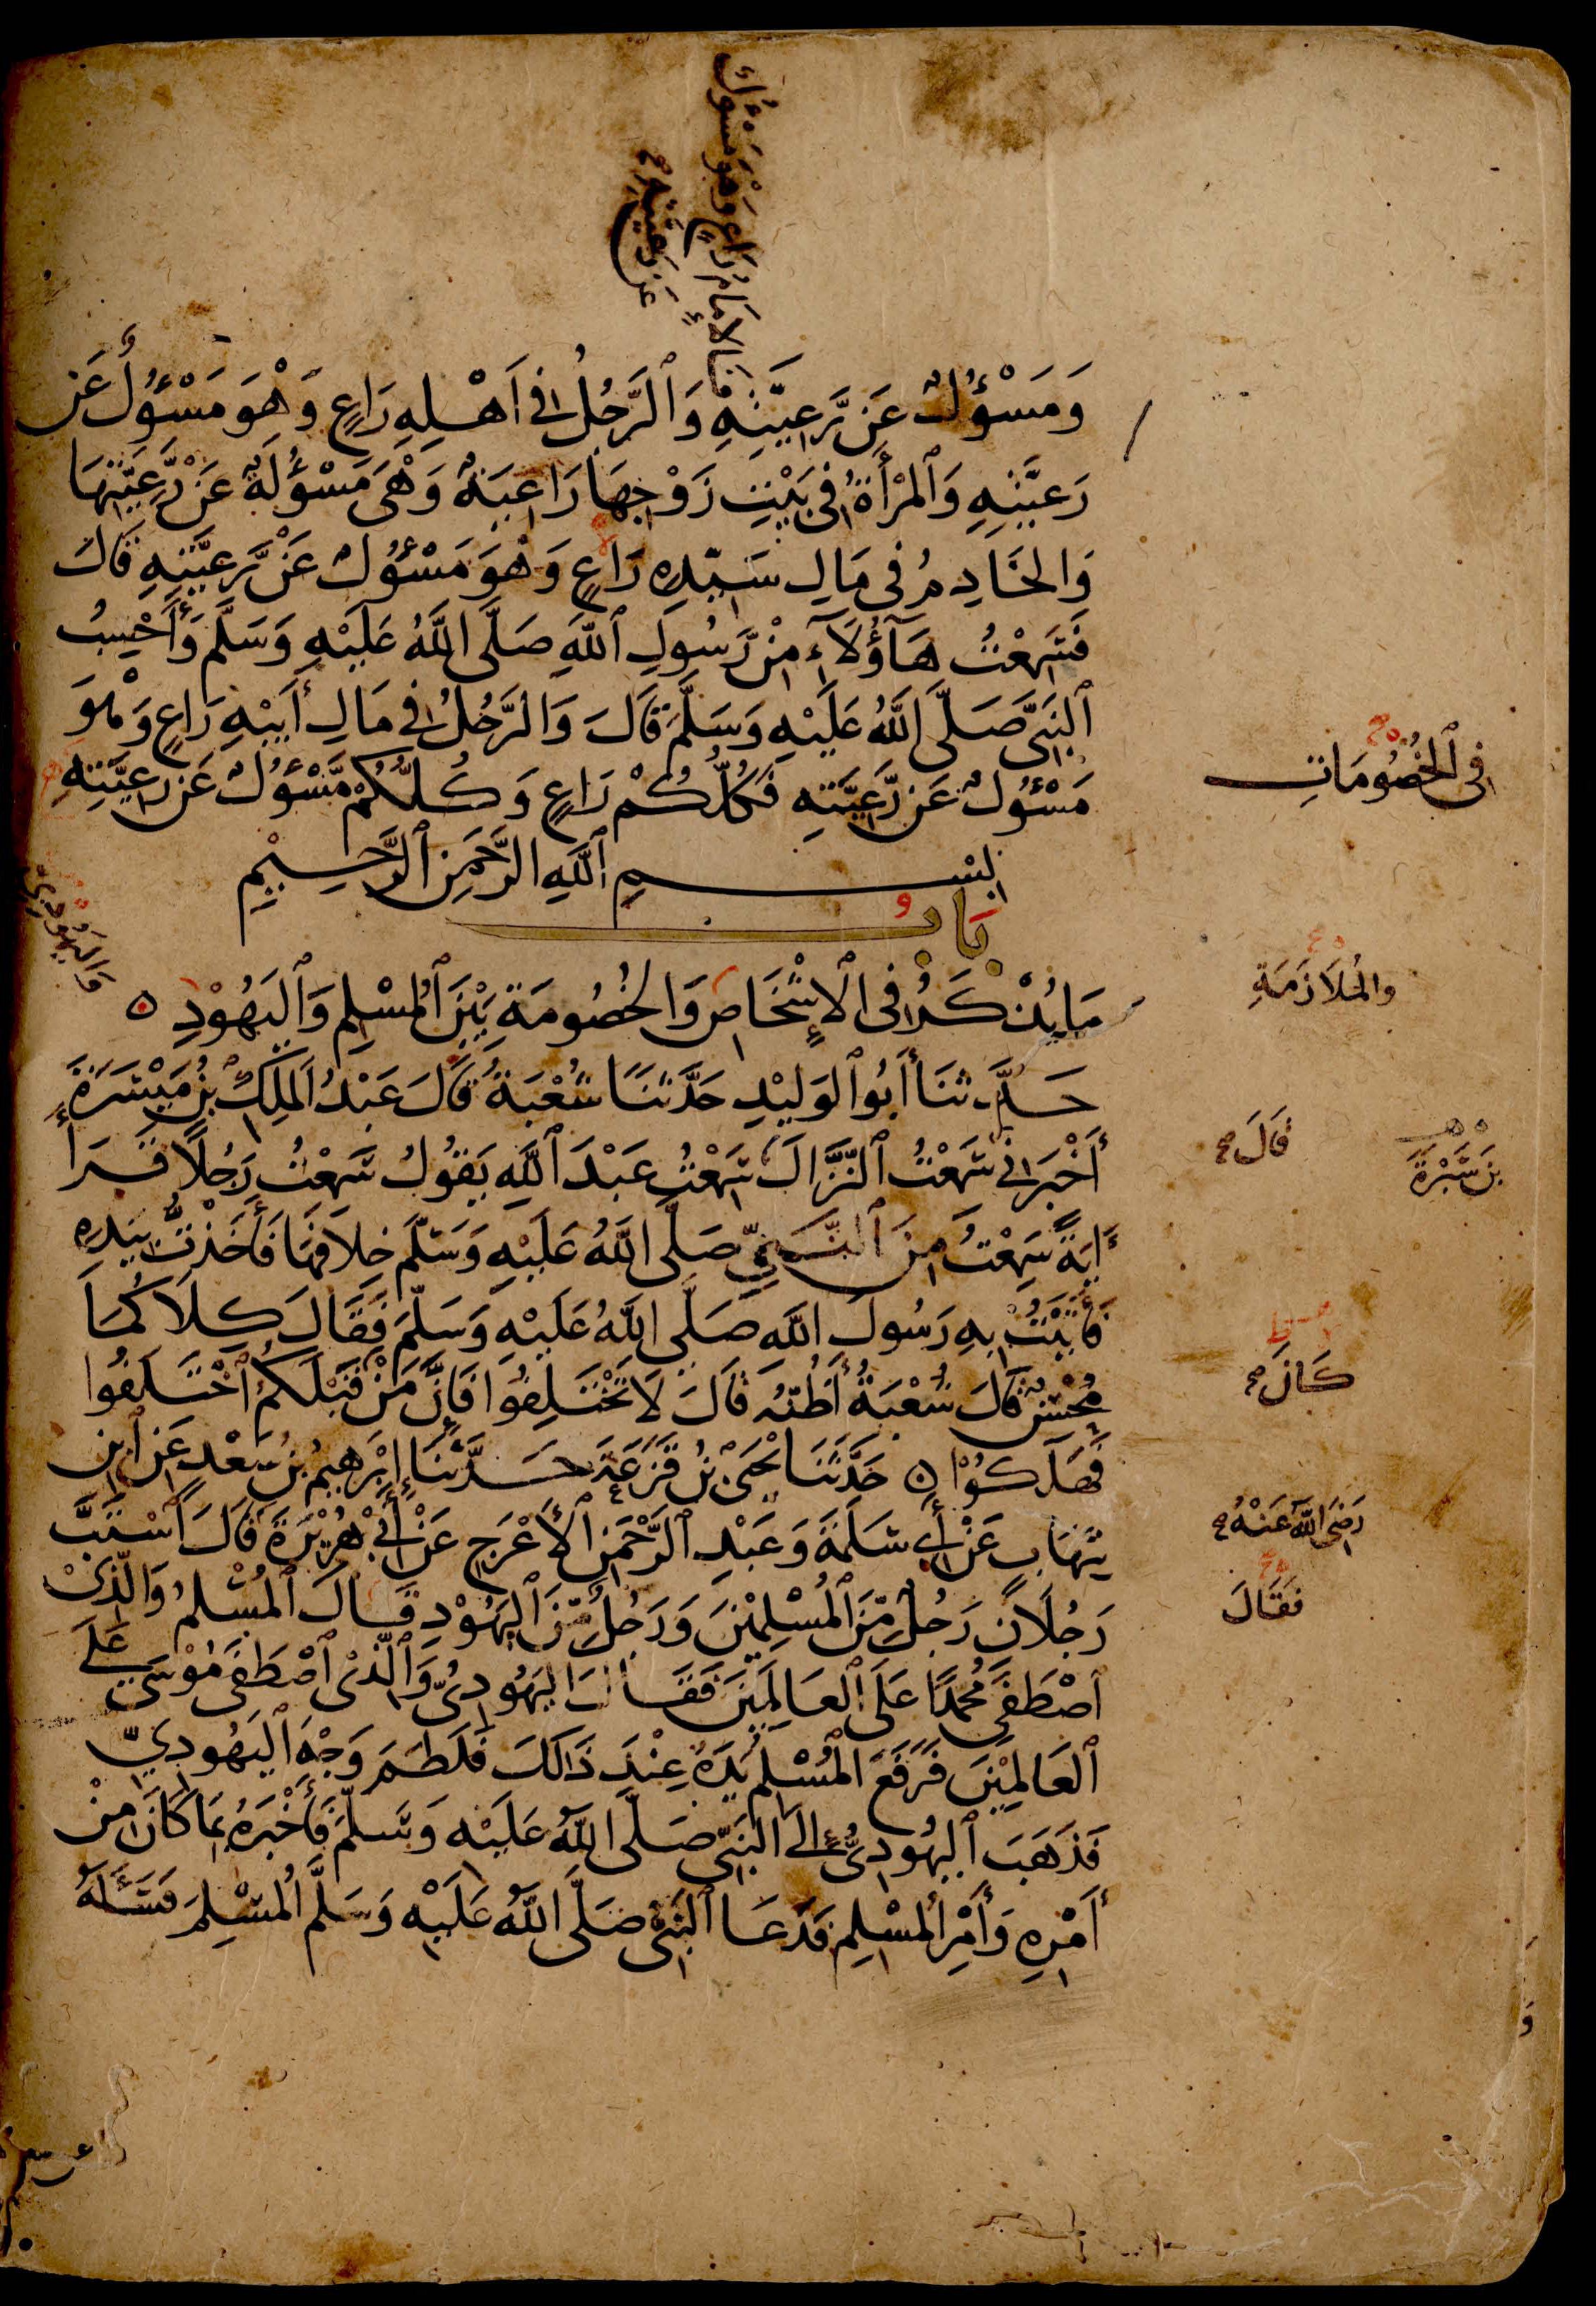 فالإمام راع وهو مسؤل
عن رعيته صح
وَمَسْؤُلٌ عَن رَّعِيَّتِهِ وَالرَّجُلُ فِى أَهْلِهِ رَاعٍ وَهْوَ مَسْؤُلٌ عَن
رَعِيَّتِهِ وَالْمَرْأَةُ فِى بَيْتِ زَوْجِهَا رَاعِيَةٌ وَهْىَ مَسْؤُلَةٌ عَنْ رَّعِيَّتِهَا
وَالخَادِمُ فِى مَالِ سَيِّدِهِ رَاعٍ وَهْوَ مَسْؤُلٌ عَنْ رَّعِيَّتِهِ قَالَ
فَسَمِعْتُ هَآؤُلَآءِ مِنْ رَّسُولِ اللَّهِ صَلَّى اللَّهُ عَلَيْهِ وَسَلَّمَ وَأَحْسِبُ
النَّبِىَّ صَلَّى اللَّهُ عَلَيْهِ وَسَلَّمَ قَالَ وَالرَّجُلُ فِى مَالِ أَبِيْهِ رَاعٍ وَهْوَ
مَسْؤُلٌ عَن رَّعِيَّتِهِ فَكُلُّكُمْ رَاعٍ وَكُلُّكُمْ مَّسْؤُلٌ عَن رَعِيَّتِهِ
فى الخُصُومَاتِ
بِسْمِ اللَّهِ الرَّحْمَنِ الرَّحِيْمِ
بَابُ
مَا يُذْكَرُ فِى الْإِشْخَاصِ وَالخُصُومَةِ بَيْنَ الْمُسْلِمِ وَالْيَهُوْدِ ه
والمُلَازَمَةِ
وَالْيَهُودِىِّ
حَدَّثَنَا أَبُو الوَلِيْدِ حَدَّثَنَا شُعْبَةُ قَالَ عَبْدُ المَلِكِ بْنُ مَيْسَرَةَ
أَخْبَرَنِى سَمِعْتُ النَّزَّالَ سَمِعْتُ عَبْدَ اللَّهِ يَقُوْلُ سَمِعْتُ رَجُلًا قَرَأَ
قَالَ صح
بن سَبْرَةَ
ءَايَةً سَمِعْتُ مِنَ النَّبِىِّ صَلَّى اللَّهُ عَلَيْهِ وَسَلَّمَ خِلَافَهَا فَأَخَذْتُ بِيَدِهِ
فَأَتَيْتُ بِهِ رَسُولَ اللَّهِ صَلَّى اللَّهُ عَلَيْهِ وَسَلَّمَ فَقَالَ كِلَاكُمَا
مُحْسِنٌ قَالَ شُعْبَةُ أَظُنُّهُ قَالَ لَا تَخْتَلِفُوا فَإِنَّ مَنْ قَبْلَكُمُ اخْتَلَفُوا
كَانَ صح
فَهَلَكُوْا ه حَدَّثَنَا يَحْيَى بْنُ قَزَعَةَ حَدَّثَنَا إِبْرَهِيمُ بْنُ سَعْدٍ عَنِ ابْنِ
شِهَابٍ عَنْ أَبِى سَلَمَةَ وَعَبْدِ الرَّحْمَنِ الْأَعْرَجِ عَنْ أَبِى هُرَيْرَةَ قَالَ اسْتَبَّ
رَضِىَ اللَّهُ عَنْهُ صح
رَجُلَانِ رَجُلٌ مِّنَ الْمُسْلِمِيْنَ وَرَجُلٌ مِّنَ الْيَهُوْدِ قَالَ الْمُسْلِمُ وَالَّذِىْ
فَقَالَ
اصْطَفَى مُحَمَّدًا عَلَى الْعَالَمِيْنَ فَقَالَ الْيَهُودِىُّ وَالَّذِىْ اصْطَفَى مُوْسَى عَلَى
الْعَالَمِيْنَ فَرَفَعَ الْمُسْلِمُ يَدَهُ عِنْدَ ذَالِكَ فَلَطَمَ وَجْهَ الْيَهُودِىِّ
فَذَهَبَ الْيَهُودِىُّ إِلَى النَّبِىِّ صَلَّى اللَّهُ عَلَيْهِ وَسَلَّمَ فَأَخْبَرَهُ بِمَا كَانَ مِنْ
أَمْرِهِ وَأَمْرِ الْمُسْلِمِ فَدَعَا النَّبِىُّ صَلَّى اللَّهُ عَلَيْهِ وَسَلَّمَ الْمُسْلِمَ فَسَأَلَهُ